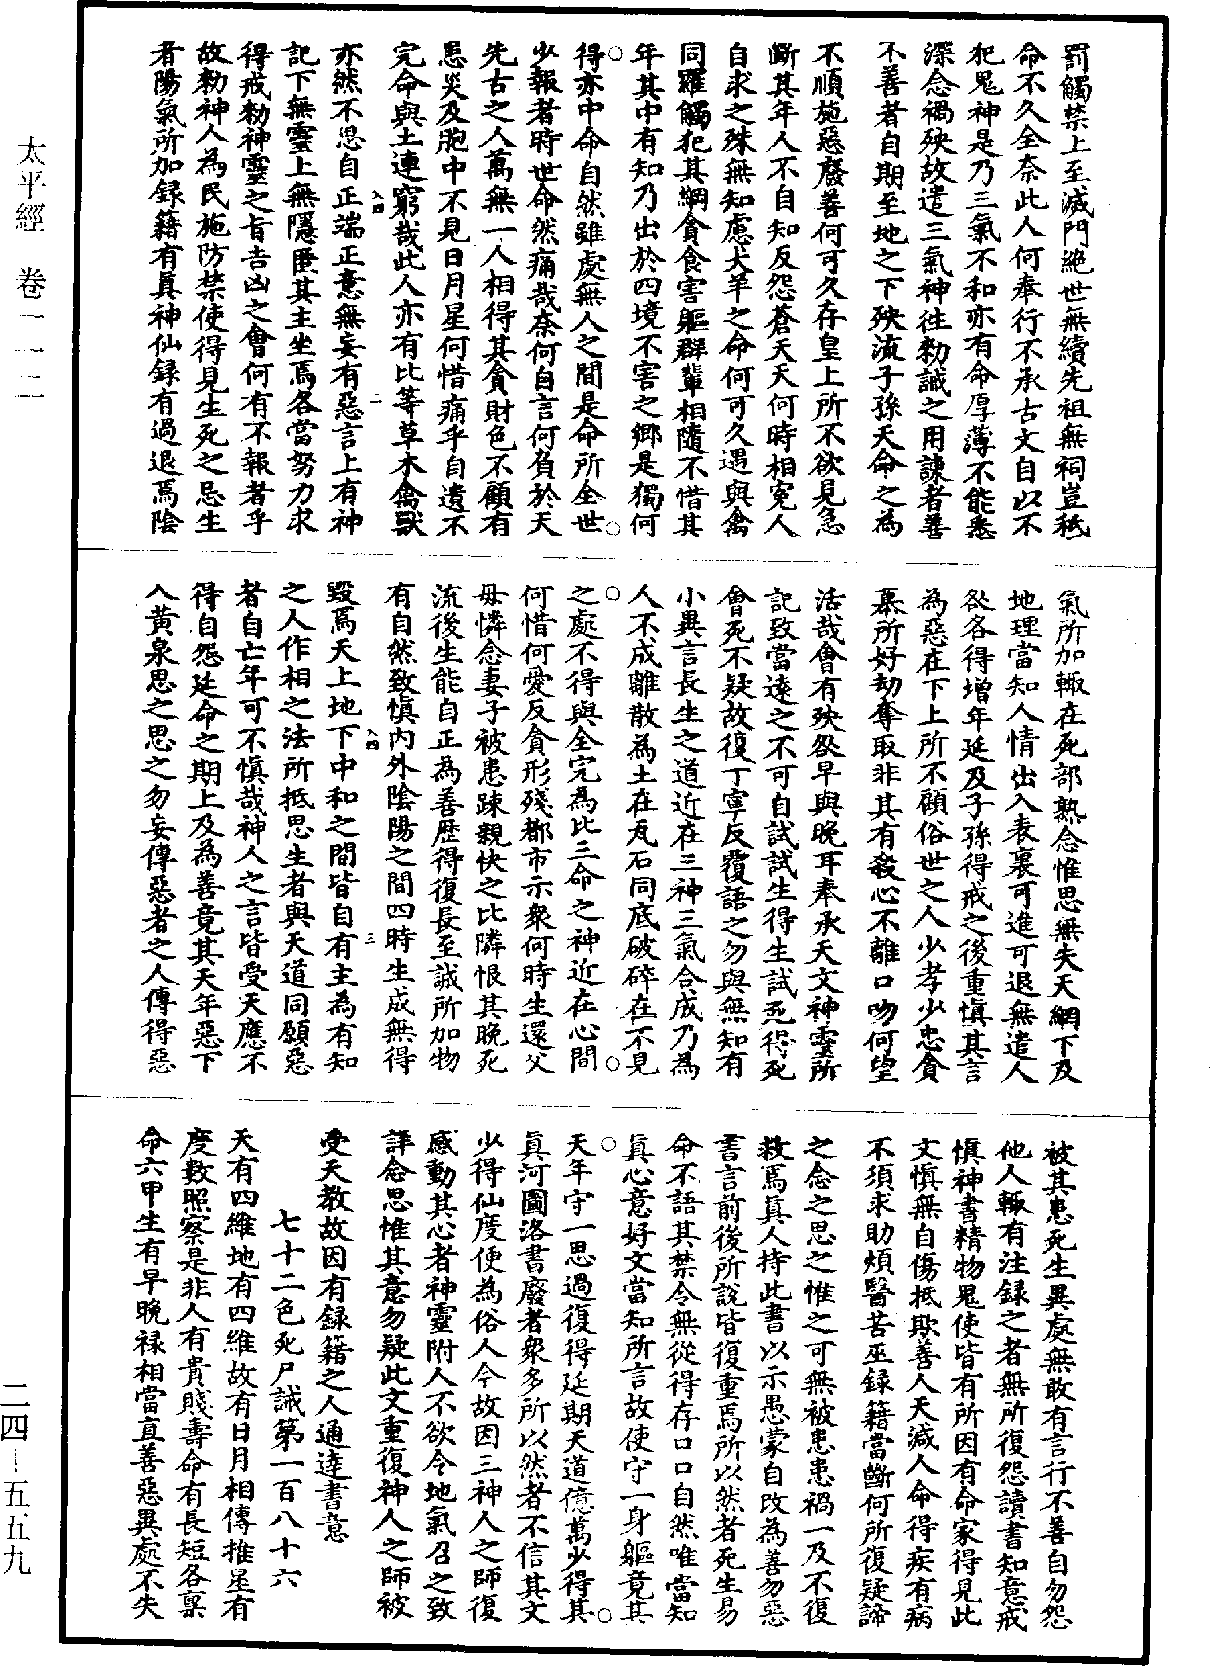 罰觸禁上至滅門絶世無續先祖無祠豈秖
命不久全奈此人何奉行不承古文自以不
犯鬼神是乃三氣不和亦有命厚薄不能悉
深念禍殃故遣三氣神往勑誡之用諫者善
不善者自期至地之下殃流子孫天命之為
不順施惡廢善何可久存皇上所不欲見急
斷其年人不自知反怨蒼天天何時相寃人
自求之殊無知慮犬羊之命何可久遇與禽
同羅觸犯其綱貪食害軀群輩相隨不惜其
年其中有知乃出於四境不害之鄉是獨何
得亦中命自然雖處無人之間是命所全世
少報者時世命然痛哉奈何自言何負於天
先古之人萬無一人相得其貪財色不顧有
患災及胞中不見日月星何惜痛乎自遺不
完命與土連窮哉此人亦有比等草木禽獸
亦然不思自正端正意無妄有惡言上有神
記下無靈上無隱匿其主坐焉各當努力求
得戒勑神靈之旨吉凶之會何有不報者乎
故勑神人為民施防禁使得見生死之忌生
者陽氣所加録籍有真神仙録有過退焉陰
入四
二
氣所加輙在死部熟念惟思無失天網下及
地理當知人情出入表裏可進可退無遣人
咎各得增年延及子孫得戒之後重慎其言
為惡在下上所不顧俗世之人少孝少忠貪
慕所好劫奪取非其有殺心不離口吻何望
活哉會有殃咎早與晚耳奉承天文神靈所
記致當遠之不可自試試生得生試死得死
會死不疑故復丁寧反覆語之勿與無知有
小異言長生之道近在三神三氣合成乃為
人不成離散為土在瓦石同底破碎在不見
之處不得與全完為比三命之神近在心間
何惜何愛反貪形殘都市示衆何時生還父
母憐念妻子被患踈親快之比隣恨其晚死
流後生能自正為善歷得復長至誠所加物
有自然致慎內外陰陽之間四時生成無得
毀焉天上地下中和之間皆自有主為有知
之人作相之法所抵思生者與天道同願惡
者自亡年可不慎哉神人之言皆受天應不
得自怨廷命之期上及為善竟其天年惡下
入黃泉思之思之勿妄傳惡者之人傳得惡
入四
三
被其患死生異處無敢有言行不善自勿怨
他人輙有注録之者無所復怨讀書知意戒
慎神書精物鬼使皆有所因有命家得見此
文慎無自傷抵欺善人天減人命得疾有病
不須求助煩醫苦巫録籍當斷何所復疑諦
之念之思之惟之可無被患患禍一及不復
救焉真人持此書以示愚蒙自改為善勿惡
書言前後所說皆復重焉所以然者死生易
命不語其禁令無從得存口口自然唯當知
真心意好文當知所言故使守一身軀竟其
天年守一思過復得延期天道億萬少得其
真河圖洛書廢者衆多所以然者不信其文
少得仙度便為俗人今故因三神人之師復
感動其心者神靈附人不欲令地氣召之致
詳念思惟其意勿疑此文重復神人之師被
受天教故因有録籍之人通達書意
七十二色死尸誡第一百八十六
天有四維地有四維故有日月相傳推星有
度數照察是非人有貴賤壽命有長短各稟
命六甲生有早晚禄相當直善惡異處不失
太平經　卷一一二
二四－五五九